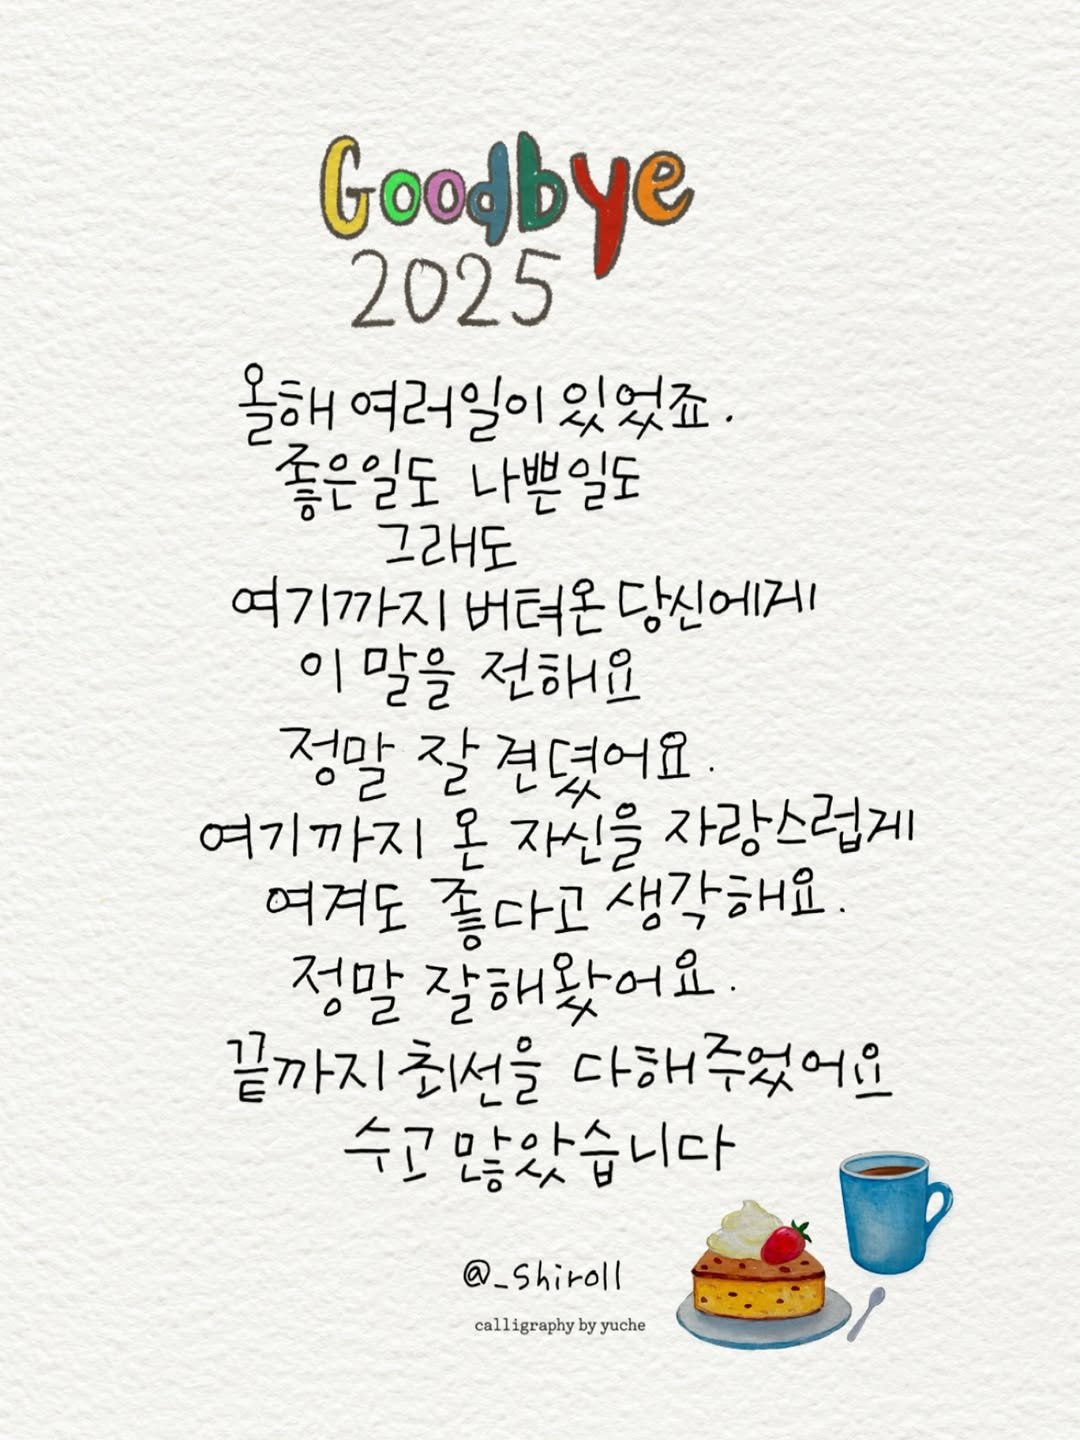 Goodbye
2025
올해 여러일이 있었죠.
좋은일도 나쁜일도
그래도
여기까지 버텨온 당신에게
이 말을 전해요
정말 잘 견뎠어요.
여기까지 온 자신을 자랑스럽게
여겨도 좋다고 생각해요.
정말 잘해왔어요.
끝까지 최선을 다해주었어요
수고 많았습니다
@_shiroll
calligraphy by yuche